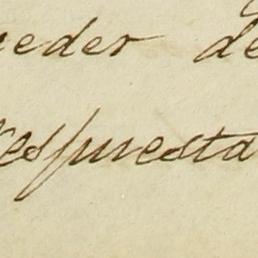 eder de
respuesta